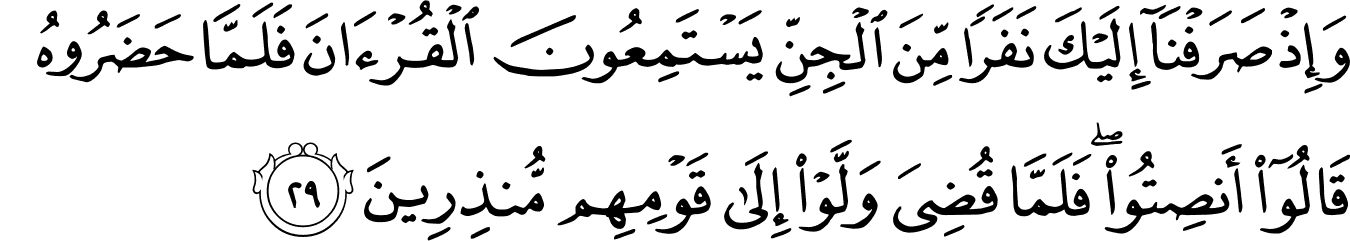 وَإِذْ صَرَفْنَآ إِلَيْكَ نَفَرًا مِّنَ ٱلْجِنِّ يَسْتَمِعُونَ ٱلْقُرْءَانَ فَلَمَّا حَضَرُوهُ
قَالُوٓا۟ أَنصِتُوا۟ ۖ فَلَمَّا قُضِىَ وَلَّوْا۟ إِلَىٰ قَوْمِهِم مُّنذِرِينَ ٢٩